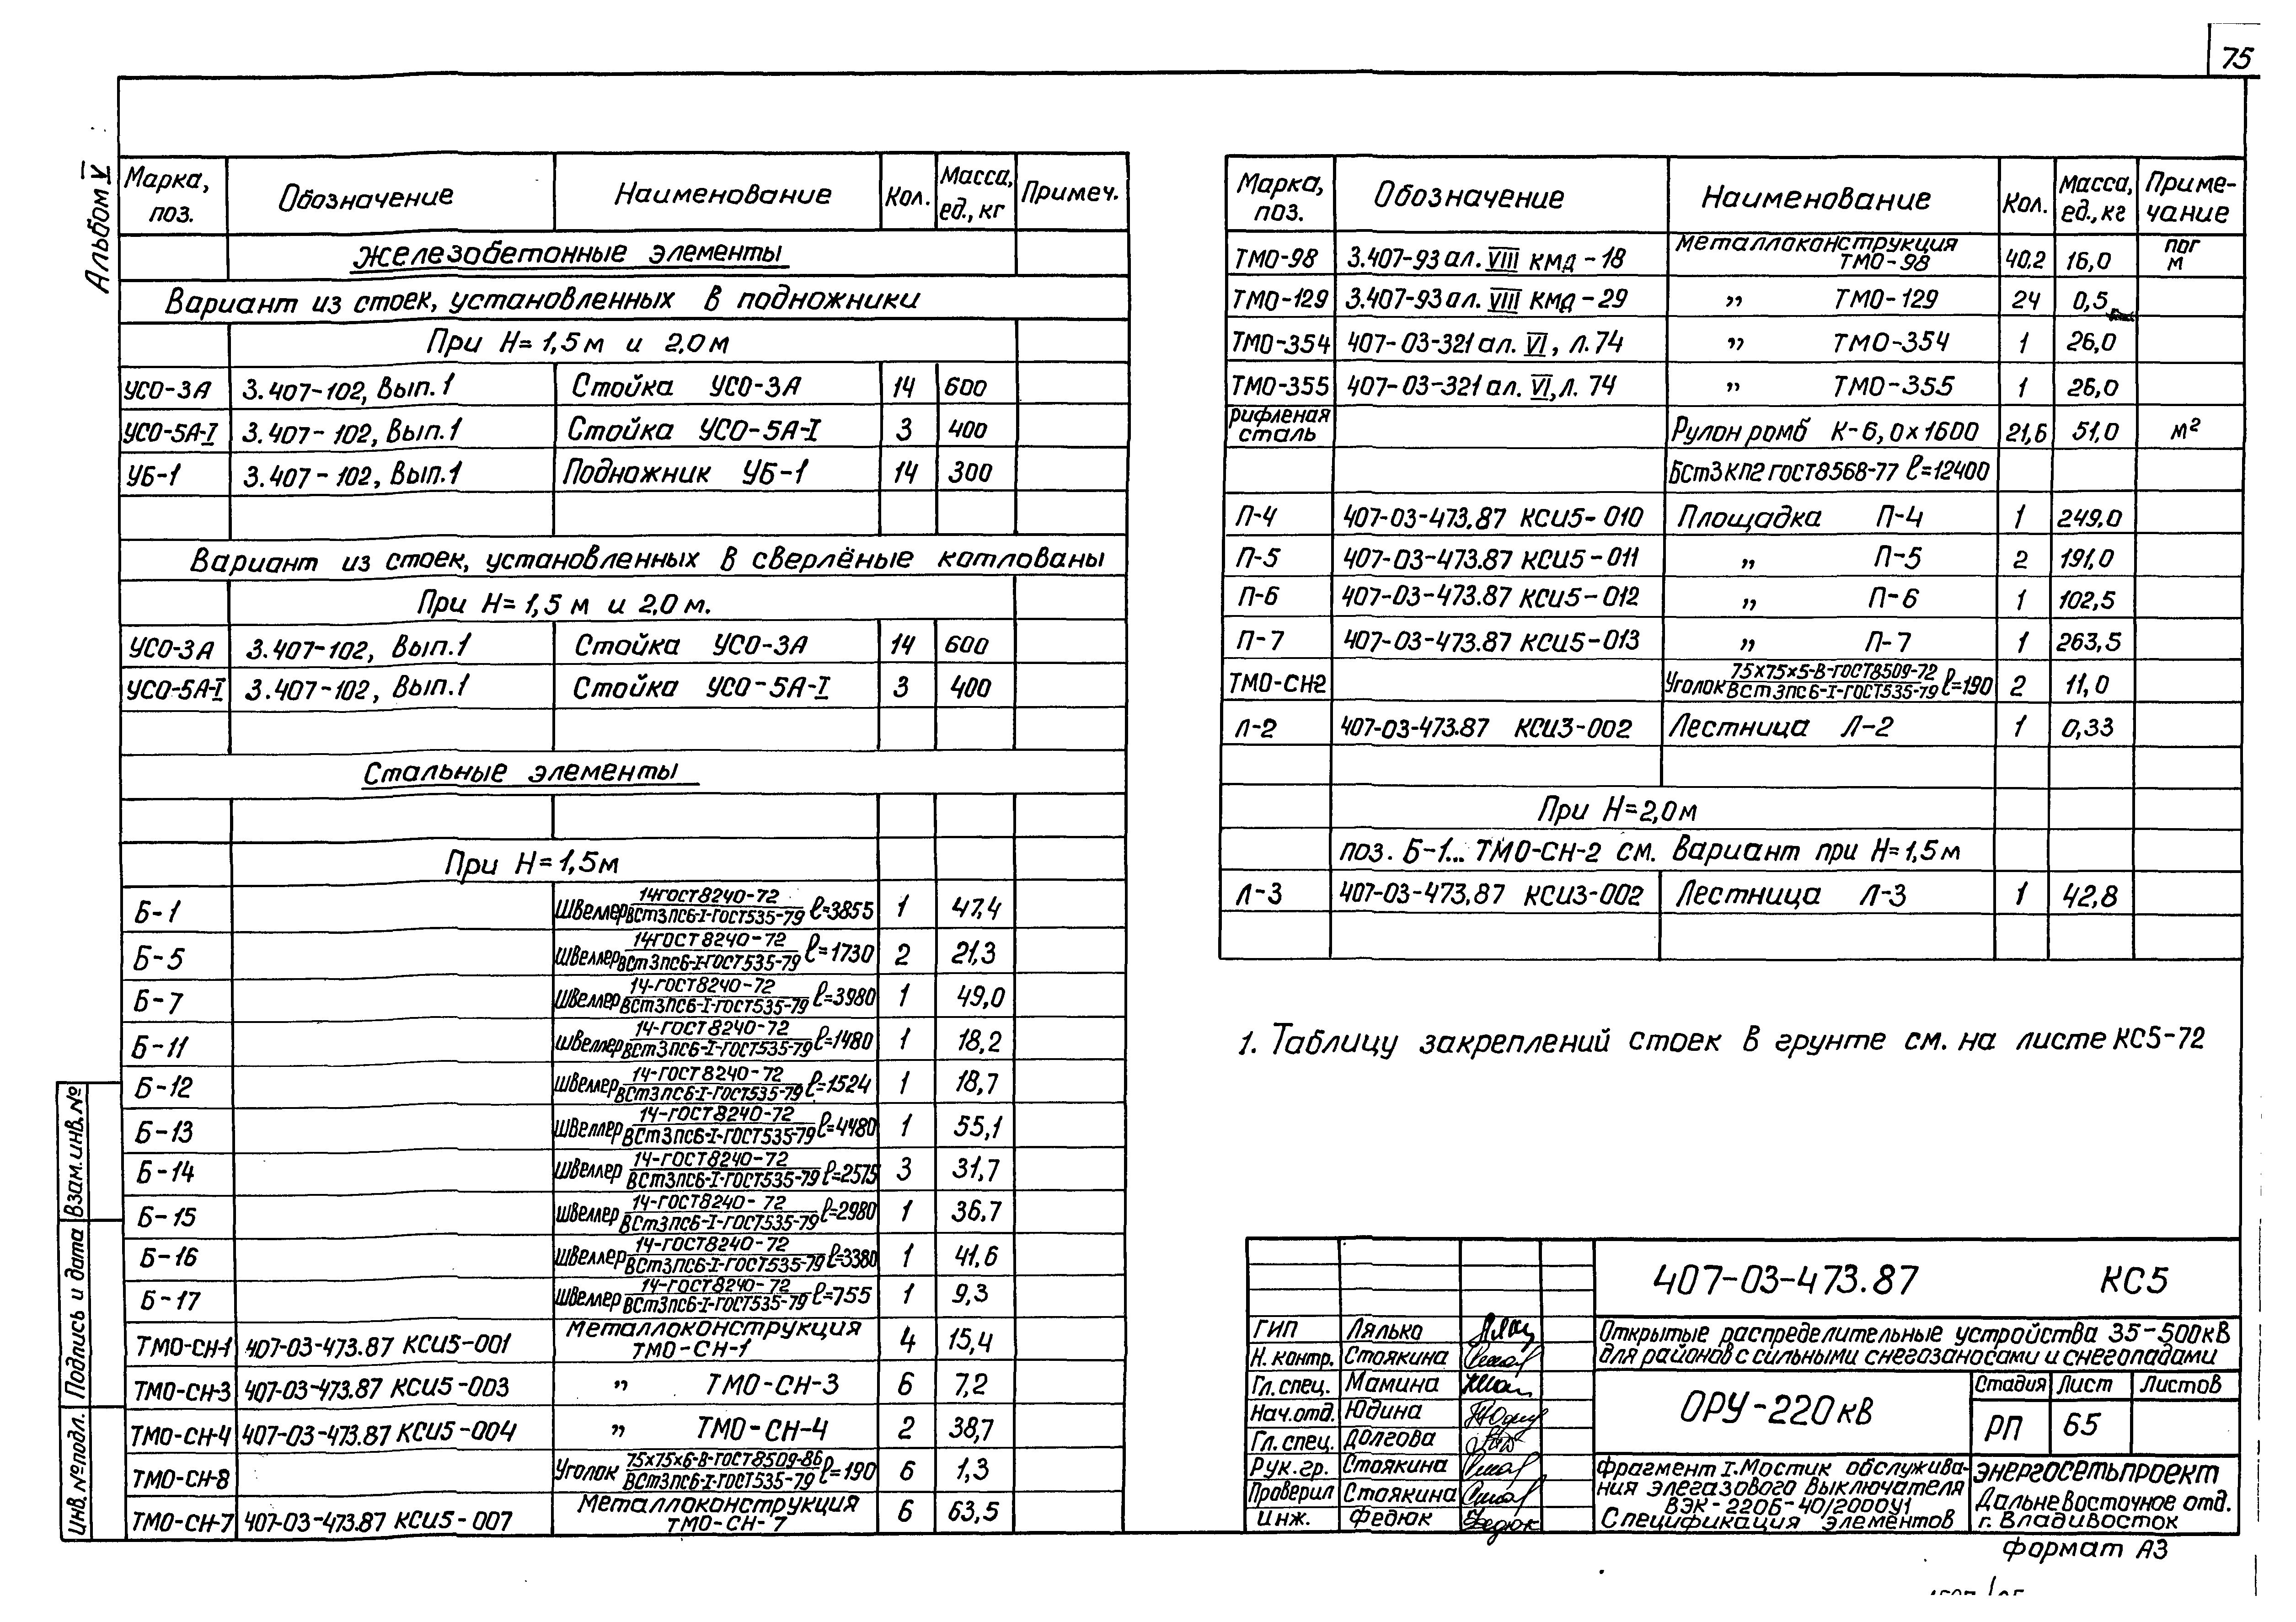 75
Альбом V
Марка, поз. Обозначение Наименование Кол. Масса, ед., кг Примеч.
Железобетонные элементы
Вариант из стоек, установленных в подножники
При Н=1,5м и 2,0м
УСО-3А 3.407-102, Вып.1 Стойка УСО-3А 14 600
УСО-5А-I 3.407-102, Вып.1 Стойка УСО-5А-I 3 400
УБ-1 3.407-102, Вып.1 Подножник УБ-1 14 300
Вариант из стоек, установленных в сверлёные котлованы
При Н=1,5м и 2,0м.
УСО-3А 3.407-102, Вып.1 Стойка УСО-3А 14 600
УСО-5А-I 3.407-102, Вып.1 Стойка УСО-5А-I 3 400
Стальные элементы
При Н=1,5м
Б-1 Швеллер 14ГОСТ8240-72 / ВСт3пс6-I-ГОСТ535-79 ℓ=3855 1 47,4
Б-5 Швеллер 14ГОСТ8240-72 / ВСт3пс6-I-ГОСТ535-79 ℓ=1730 2 21,3
Б-7 Швеллер 14-ГОСТ8240-72 / ВСт3пс6-I-ГОСТ535-79 ℓ=3980 1 49,0
Б-11 Швеллер 14-ГОСТ8240-72 / ВСт3пс6-I-ГОСТ535-79 ℓ=1480 1 18,2
Б-12 Швеллер 14-ГОСТ8240-72 / ВСт3пс6-I-ГОСТ535-79 ℓ=1524 1 18,7
Б-13 Швеллер 14-ГОСТ8240-72 / ВСт3пс6-I-ГОСТ535-79 ℓ=4480 1 55,1
Б-14 Швеллер 14-ГОСТ8240-72 / ВСт3пс6-I-ГОСТ535-79 ℓ=2575 3 31,7
Б-15 Швеллер 14-ГОСТ8240-72 / ВСт3пс6-I-ГОСТ535-79 ℓ=2980 1 36,7
Б-16 Швеллер 14-ГОСТ8240-72 / ВСт3пс6-I-ГОСТ535-79 ℓ=3380 1 41,6
Б-17 Швеллер 14-ГОСТ8240-72 / ВСт3пс6-I-ГОСТ535-79 ℓ=755 1 9,3
ТМО-СН-1 407-03-473.87 КСИ5-001 Металлоконструкция ТМО-СН-1 4 15,4
ТМО-СН-3 407-03-473.87 КСИ5-003 „ ТМО-СН-3 6 7,2
ТМО-СН-4 407-03-473.87 КСИ5-004 „ ТМО-СН-4 2 38,7
ТМО-СН-8 Уголок 75х75х6-В-ГОСТ8509-86 / ВСт3пс6-I-ГОСТ535-79 ℓ=190 6 1,3
ТМО-СН-7 407-03-473.87 КСИ5-007 Металлоконструкция ТМО-СН-7 6 63,5
Марка, поз. Обозначение Наименование Кол. Масса, ед., кг Примечание
ТМО-98 3.407-93 ал. VIII КМД-18 Металлоконструкция ТМО-98 40.2 16,0 пог м
ТМО-129 3.407-93 ал. VIII КМД-29 „ ТМО-129 24 0,5
ТМО-354 407-03-321 ал. VI, л. 74 „ ТМО-354 1 26,0
ТМО-355 407-03-321 ал. VI, л. 74 „ ТМО-355 1 26,0
рифленая сталь Рулон ромб К-6,0х1600 21,6 51,0 м²
БСт3КП2 ГОСТ8568-77 ℓ=12400
П-4 407-03-473.87 КСИ5-010 Площадка П-4 1 249,0
П-5 407-03-473.87 КСИ5-011 „ П-5 2 191,0
П-6 407-03-473.87 КСИ5-012 „ П-6 1 102,5
П-7 407-03-473.87 КСИ5-013 „ П-7 1 263,5
ТМО-СН-2 Уголок 75х75х5-В-ГОСТ8509-72 / ВСт3пс6-I-ГОСТ535-79 ℓ=190 2 11,0
Л-2 407-03-473.87 КСИ3-002 Лестница Л-2 1 0,33
При Н=2,0м
поз. Б-1... ТМО-СН-2 см. Вариант при Н=1,5м
Л-3 407-03-473.87 КСИ3-002 Лестница Л-3 1 42,8
1. Таблицу закреплений стоек в грунте см. на листе КС5-72
Инв. № подл. Подпись и дата Взам. инв. №
407-03-473.87 КС5
ГИП Лялько
Н. контр. Стоякина
Гл. спец. Мамина
Нач. отд. Юдина
Гл. спец. Долгова
Рук. гр. Стоякина
Проверил Стоякина
Инж. Федюк
Открытые распределительные устройства 35-500кВ
для районов с сильными снегозаносами и снегопадами
ОРУ-220кВ
Стадия Лист Листов
РП 65
Фрагмент I. Мостик обслужива-
ния элегазового выключателя
ВЭК-220Б-40/2000У1
Спецификация элементов
Энергосетьпроект
Дальневосточное отд.
г. Владивосток
формат А3